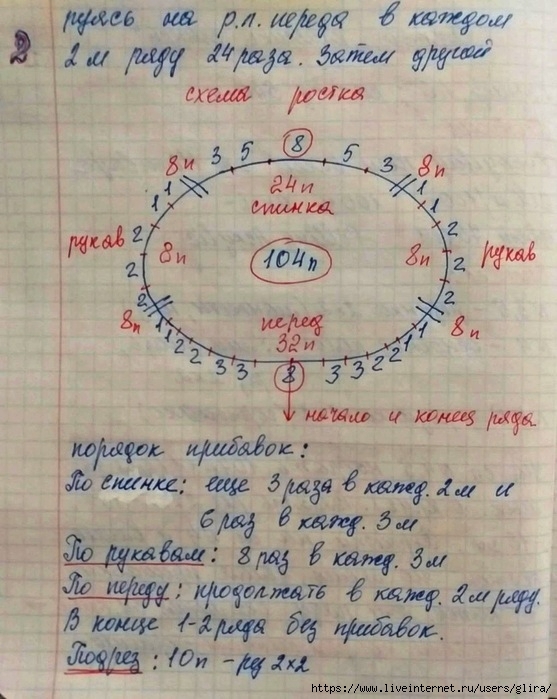 2
руясь на р.л. переда в каждом
2м ряду 24 раза. Затем другой
схема ростка
8п 3 5 8 5 3 8п
1 1 24п 1 1
спинка
2 2
рукав 8п 104п 8п 2 рукав
2
2 2
8п 1 1 2 2 3 3 перед 32п 8 3 3 2 2 1 1 8п
начало и конец ряда
порядок прибавок:
По спинке: еще 3 раза в кажд. 2м и
6 раз в кажд. 3м
По рукавам: 8 раз в кажд. 3м
По переду: продолжать в кажд. 2м ряду.
В конце 1-2 ряда без прибавок.
Подрез: 10п - рез 2х2
https://www.liveinternet.ru/users/glira/